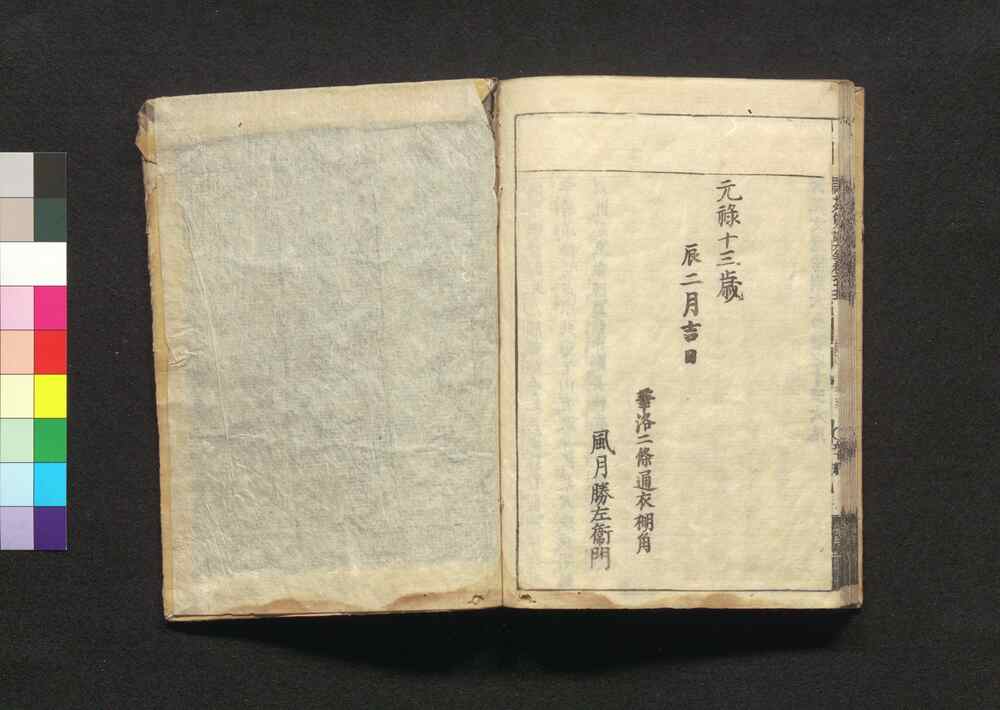 元祿十三歳
辰二月吉日
華洛二條通衣棚角
風月勝左衞門